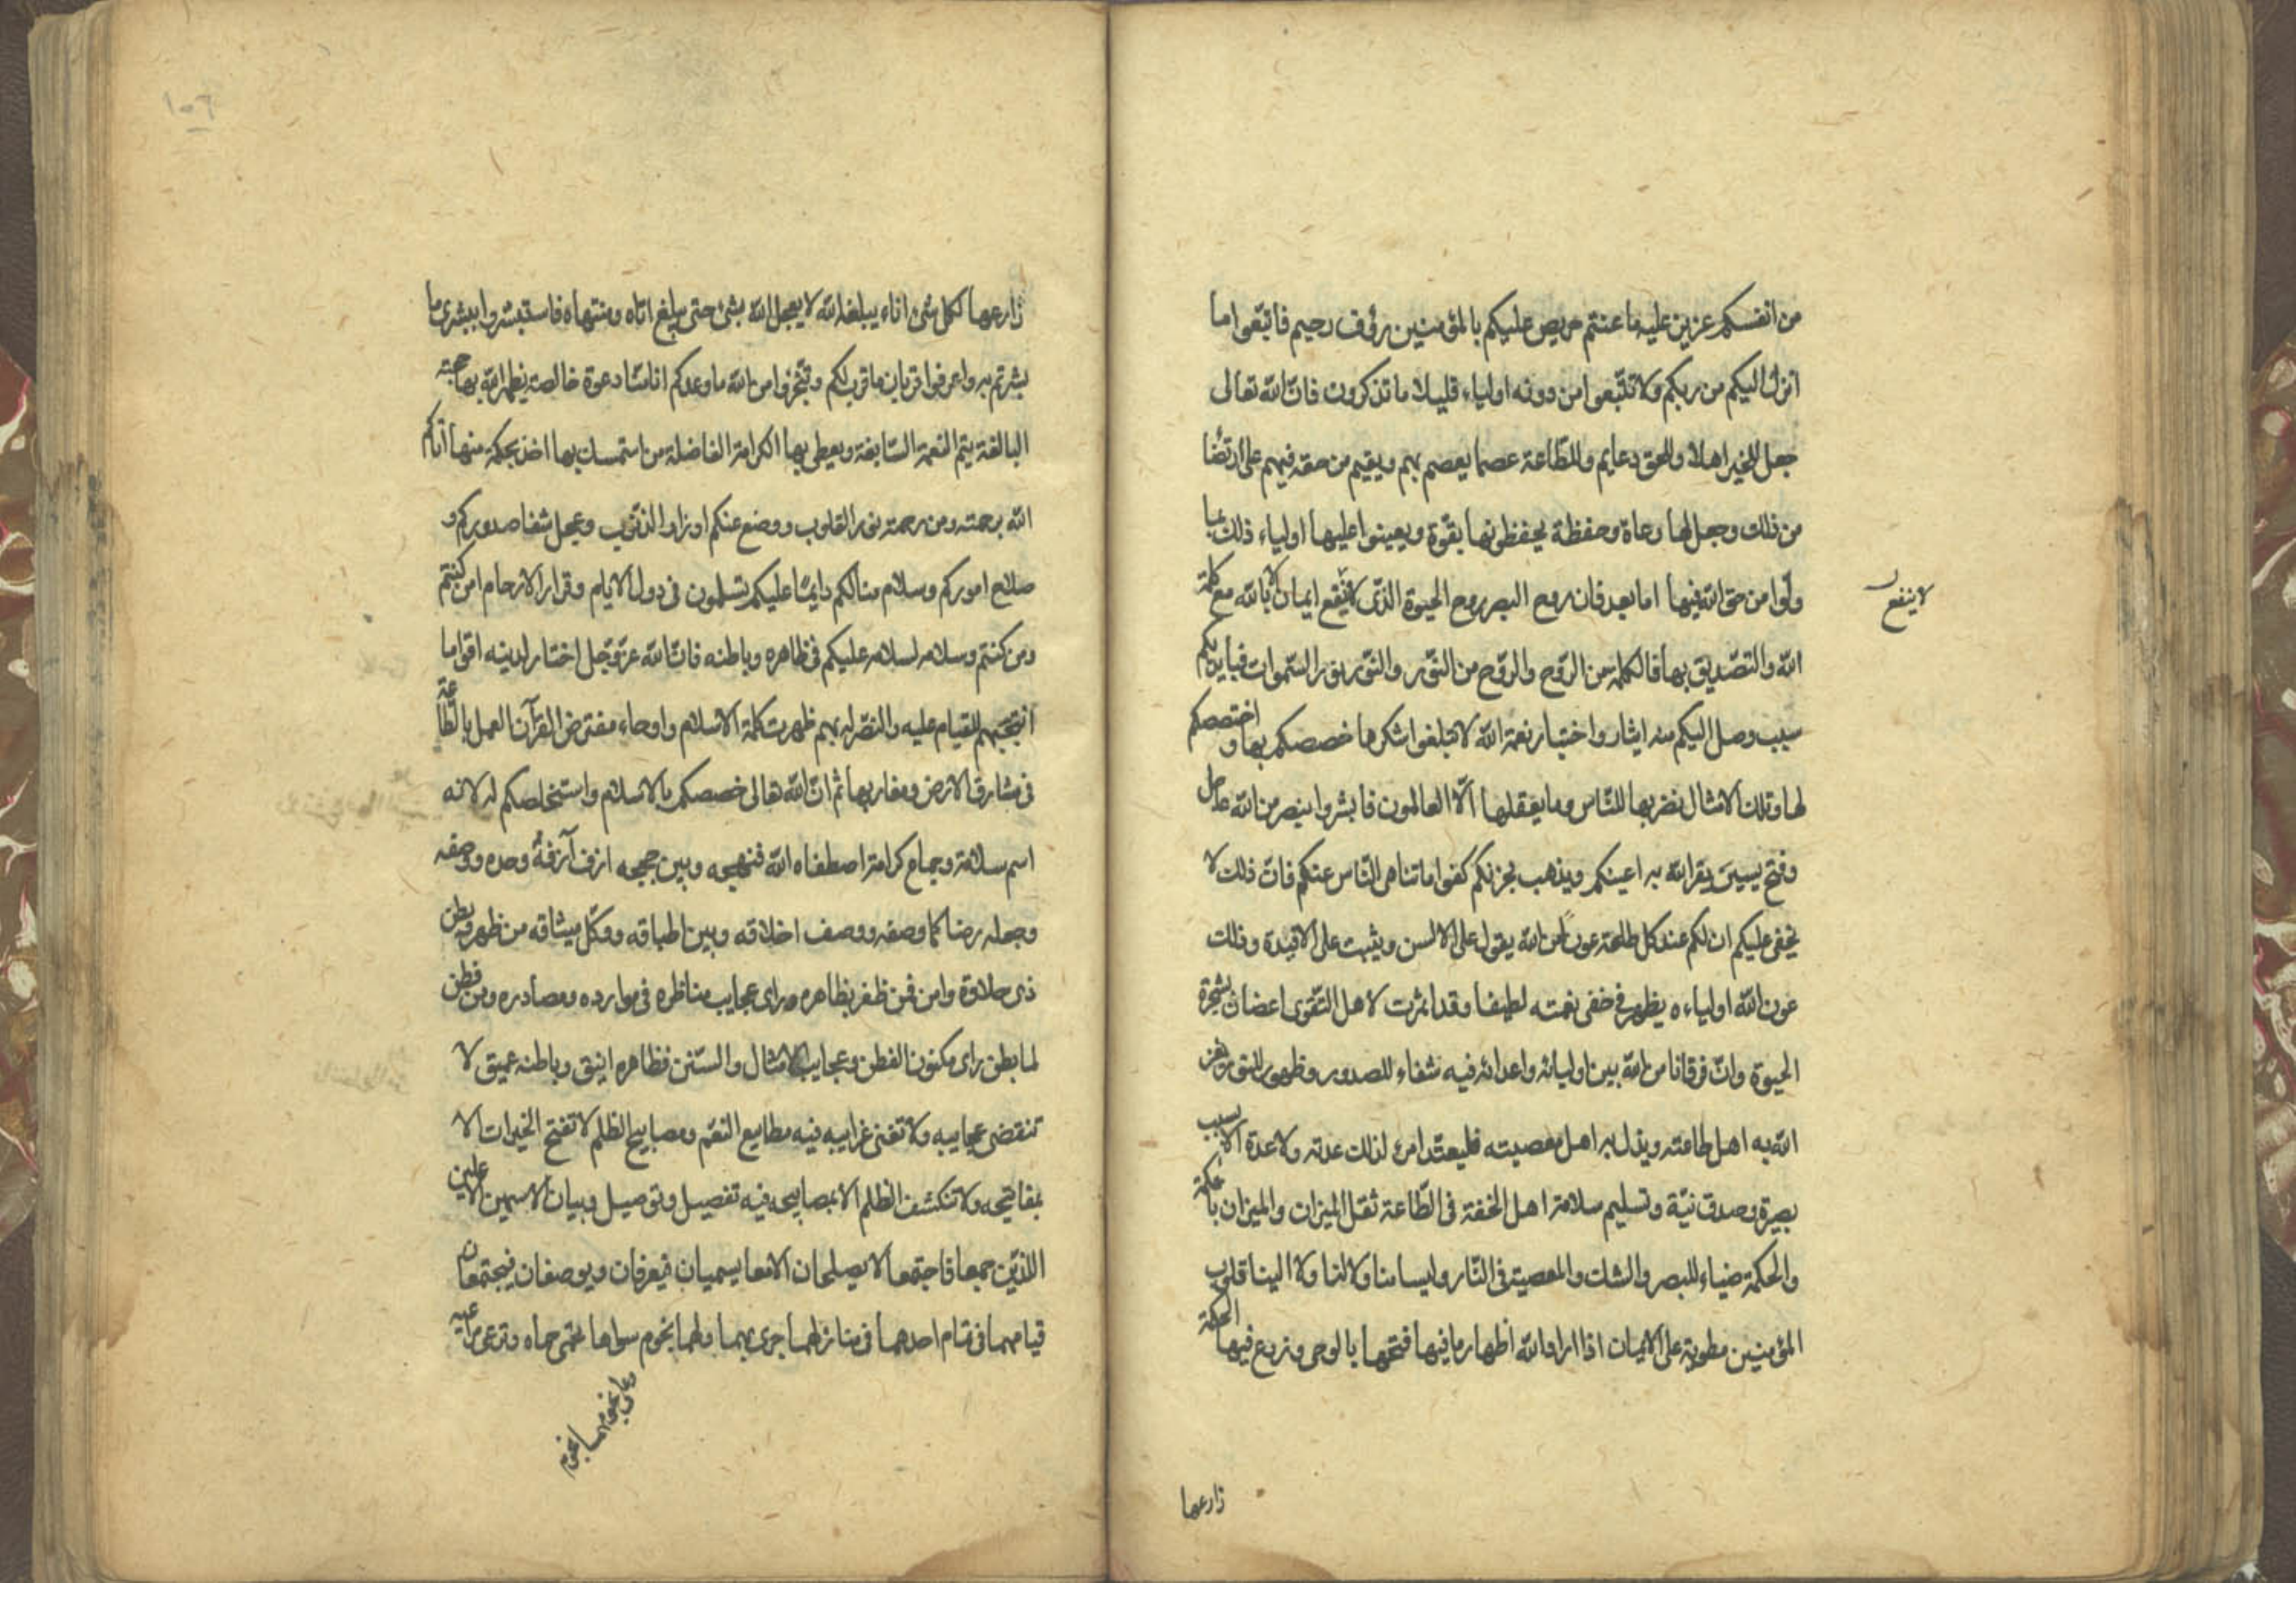 من انفسكم عزيز عليه ما عنتم حريص عليكم بالمؤمنين رؤف رحيم فاتبعوا ما
انزل اليكم من ربكم ولا تتبعوا من دونه اولياء قليلا ما تذكرون فان الله تعالى
جعل للخير اهلا وللحق دعايم وللطاعة عصما يعصم بهم ويقيم من حقه فيهم على ارتضا
من ذلك وجعل لها رعاة وحفظة يحفظونها بقوة ويعينوا عليها اولياء ذلك بما
ولوا من حق الله فيها اما بعد فان روح البصر روح الحيوة الذى لا ينفع ايمان الا بالله مع كلمة
لا ينفع
الله والتصديق بها فالكلمة من الروح والروح من النور والنور نور السموات فبايديكم
سبب وصل اليكم منه ايثار واختيار نعمة الله لا تبلغوا شكرها خصصكم بها واختصصكم
لها وتلك الامثال نضربها للناس وما يعقلها الا العالمون فابشروا بنصر من الله عاجل
وفتح يسير يقر الله به اعينكم ويذهب بحزنكم كفوا ما تناهى الناس عنكم فان ذلك لا
يخفى عليكم ان لكم عند كل طاعة عونا من الله يقول على الالسن ويثبت على الافئدة وذلك
عون الله اولياءه يظهر فى خفى نعمته لطيفا وقد اثمرت لاهل التقوى اغصان شجرة
الحيوة وان فرقانا من الله بين اوليائه واعدائه فيه شفاء للصدور وظهور للنور يعز
الله به اهل طاعته ويذل به اهل معصيته فليعتد امرء لذلك عدته ولا عدة الا بسبب
بصيرة وصدق نية وتسليم سلامة اهل الخفة فى الطاعة ثقل الميزان والميزان بالحكمة
والحكمة ضياء للبصر والشك والمعصية فى النار وليسا منا ولا لنا ولا الينا قلوب
المؤمنين مطوية على الايمان اذا اراد الله اظهار ما فيها فتحها بالوحى وزرع فيها الحكمة
زارعها
١٠٦
زارعها لكل شئ اناء يبلغه الله لا يعجل الله بشئ حتى يبلغ اناه ومنتهاه فاستبشروا ببشرى ما
بشرتم به واعرفوا قربان ما قرب لكم وتنجزوا من الله ما وعدكم ان منا دعوة خالصة يظهر الله بها حجته
البالغة يتم النعمة السابغة ويعطى بها الكرامة الفاضلة من استمسك بها اخذ بحكمة منها آتاكم
الله برحمته ومن رحمته نور القلوب ووضع عنكم اوزار الذنوب وعجل شفا صدوركم و
صلاح اموركم وسلام منا لكم دايما عليكم تسلمون فى دول الايام وقرار الارحام اين كنتم
ومن كنتم وسلامه لسلامه عليكم فى ظاهره وباطنه فان الله عز وجل اختار لدينه اقواما
انتجبهم للقيام عليه والنصر له بهم ظهرت كلمة الاسلام وارجاء مفترض القرآن العمل بالطاعة
فى مشارق الارض ومغاربها ثم ان الله تعالى خصصكم بالاسلام واستخلصكم له لانه
اسم سلامة وجماع كرامة اصطفاه الله فنهجه وبين حججه ارف آرفة وحده ووصفه
وجعله رضا كما وصفه ووصف اخلاقه وبين اطباقه ووكل ميثاقه من ظهر وبطن
ذى حلاوة وامن فمن ظفر بظاهره راى عجايب مناظره فى موارده ومصادره ومن فطن
لما بطن راى مكنون الفطن وعجايب الامثال والسنن فظاهره انيق وباطنه عميق لا
تنقضى عجايبه ولا تفنى غرايبه فيه مطابيع النعم ومصابيح الظلم لا تفتح الخيرات الا
بمفاتيحه ولا تنكشف الظلم الا بمصابيحه فيه تفصيل وتوصيل وبيان الاسمين الاعلين
اللذين جمعا فاجتمعا لا يصلحان الا معا يسميان فيعرفان ويوصفان فيجتمعان
قيامهما فى تمام احدهما فى منازلهما جرى بهما ولهما نجوم سواها تحمى حماه وترعى مراعيه